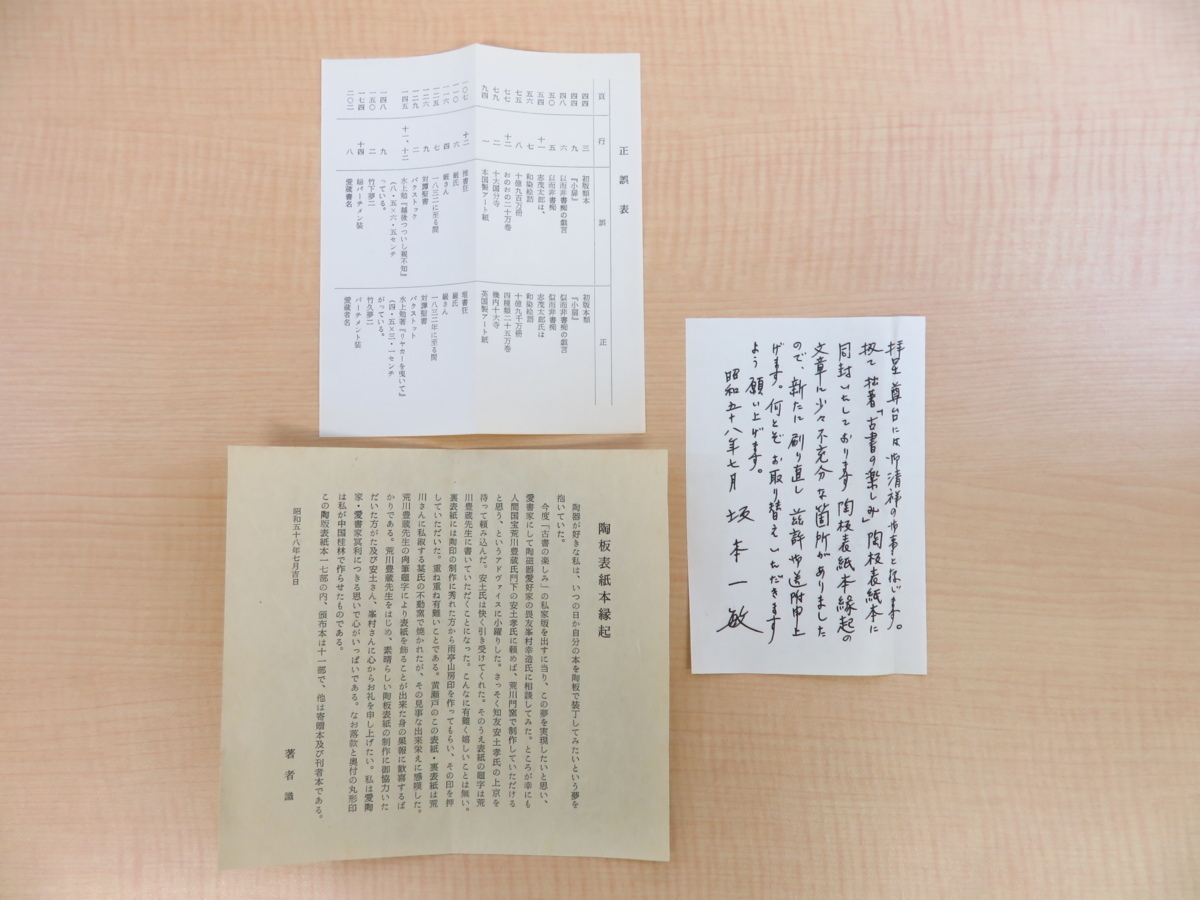 正誤表
頁
行
誤
正
四四 三 初版類本 初版本類
四四 九 『小扉』
四八 六 以而非書痴の戯言 似而非書痴の戯言
五〇 五 以而非書痴 似而非書痴
五四 十一 志茂太郎は、 志茂太郎氏は
五六 七 和染絵語 和染絵語
七五 八 十億九百万冊 十億九千万冊
七七 十二 おのおの二十万巻 四種類二十五万巻
七九 二 十六国分寺 畿内十大寺
九四 一 本国製アート紙 英国製アート紙
一〇七 十二
一一〇 六
一一六 四
一二五 七 一八三二に至る間 一八三二年に至る間
一二六 九 対譚聖書 対譯聖書
一二九 二 バクストック バクストット
一四五 十一、十二 水上勉『越後つついし親不知』 水上勉著『リヤカーを曳いて』
(八・五×六・五センチ (四・五×三・一センチ
一四八 九 っている。 がっている。
一五〇 二 竹下夢二 竹久夢二
一七四 十四 総パーチメン装 パーチメント装
二〇二 八 愛蔵書名 愛蔵者名
拝呈 尊台には御清祥の御事と存じます。
扨て 拙著「古書の楽しみ」陶板表紙本に
同封いたしております 陶板表紙本縁起の
文章に少々不充分な箇所がありました
ので、新たに刷り直し 茲許御送附申上
げます。何とぞ お取り替えいただきます
よう 願い上げます。
昭和五十八年七月 坂本一敏
陶板表紙本縁起
陶器が好きな私は、いつの日か自分の本を陶板で装丁してみたいという夢を
抱いていた。
今度「古書の楽しみ」の私家版を出すに当り、この夢を実現したいと思い、
愛書家にして陶磁器愛好家の畏友峯村幸造氏に相談してみた。ところが幸にも
人間国宝荒川豊蔵氏門下の安土孝氏に頼めば、荒川門窯で制作していただける
と思う、というアドヴァイスに小躍りした。さっそく知友安土孝氏の上京を
待って頼み込んだ。安土氏は快く引き受けてくれた。そのうえ表紙の題字は荒
川豊蔵先生に書いていただくことになった。こんなに有難く嬉しいことは無い。
裏表紙には陶印の制作に秀れた方から雨亭山房印を作ってもらい、その印を押
していただいた。重ね重ね有難いことである。黄瀬戸のこの表紙・裏表紙は荒
川さんに私淑する某氏の不動窯で焼かれたが、その見事な出来栄えに感嘆した。
荒川豊蔵先生の肉筆題字により表紙を飾ることが出来た身の果報に歓喜するば
かりである。荒川豊蔵先生をはじめ、素晴らしい陶板表紙の制作に御協力いた
だいた方がた及び安土さん、峯村さんに心からお礼を申し上げたい。私は愛陶
家・愛書家冥利につきる思いで心がいっぱいである。なお落款と奥付の丸形印
は私が中国桂林で作らせたものである。
この陶版表紙本一七部の内、頒布本は十一部で、他は寄贈本及び刊者本である。
昭和五十八年七月吉日
著者識